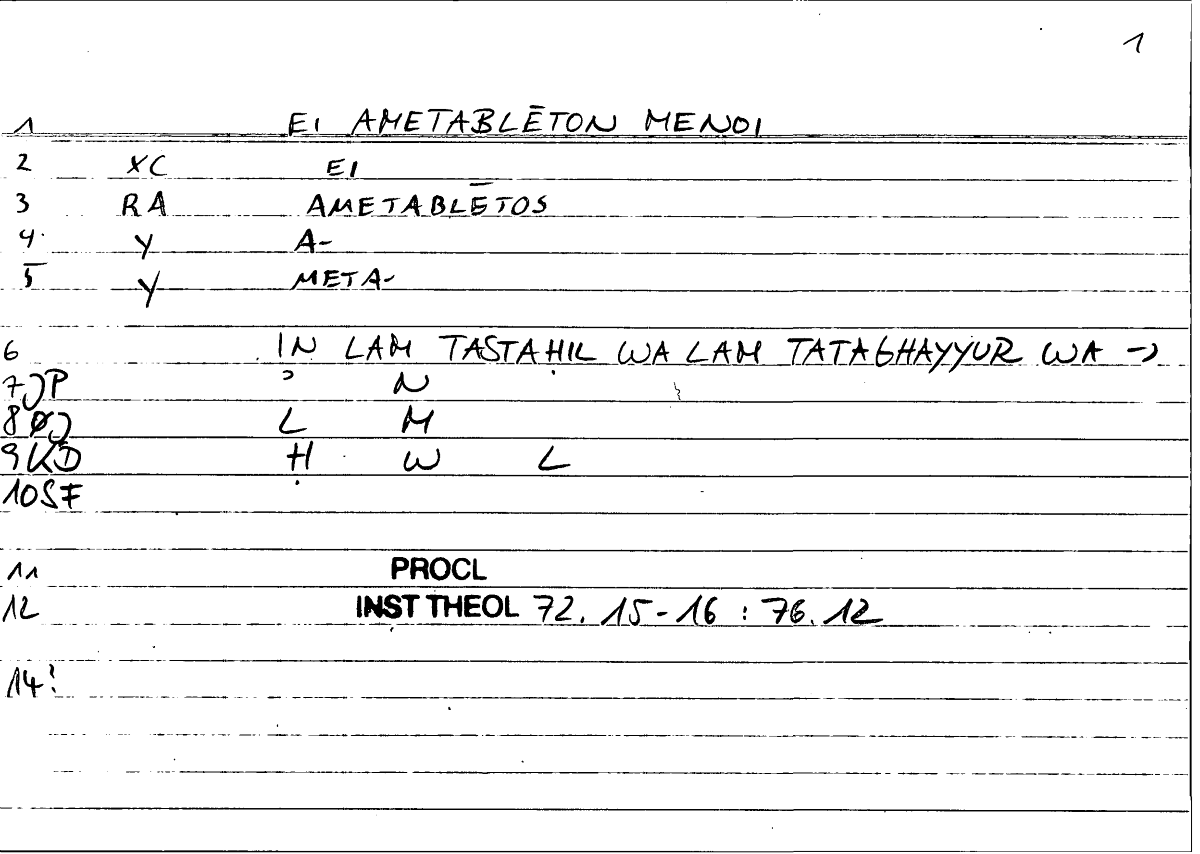 1
1 EI AMETABLĒTON MENOI
2 XC EI
3 RA AMETABLĒTOS
4 Y A-
5 Y META-
6 IN LAM TASTAḤIL WA LAM TATAGHAYYUR WA →
7 JP ʾ N
8 ØJ L M
9 KD Ḥ W L
10 SF
11 PROCL
12 INST THEOL 72. 15-16 : 76. 12
14: